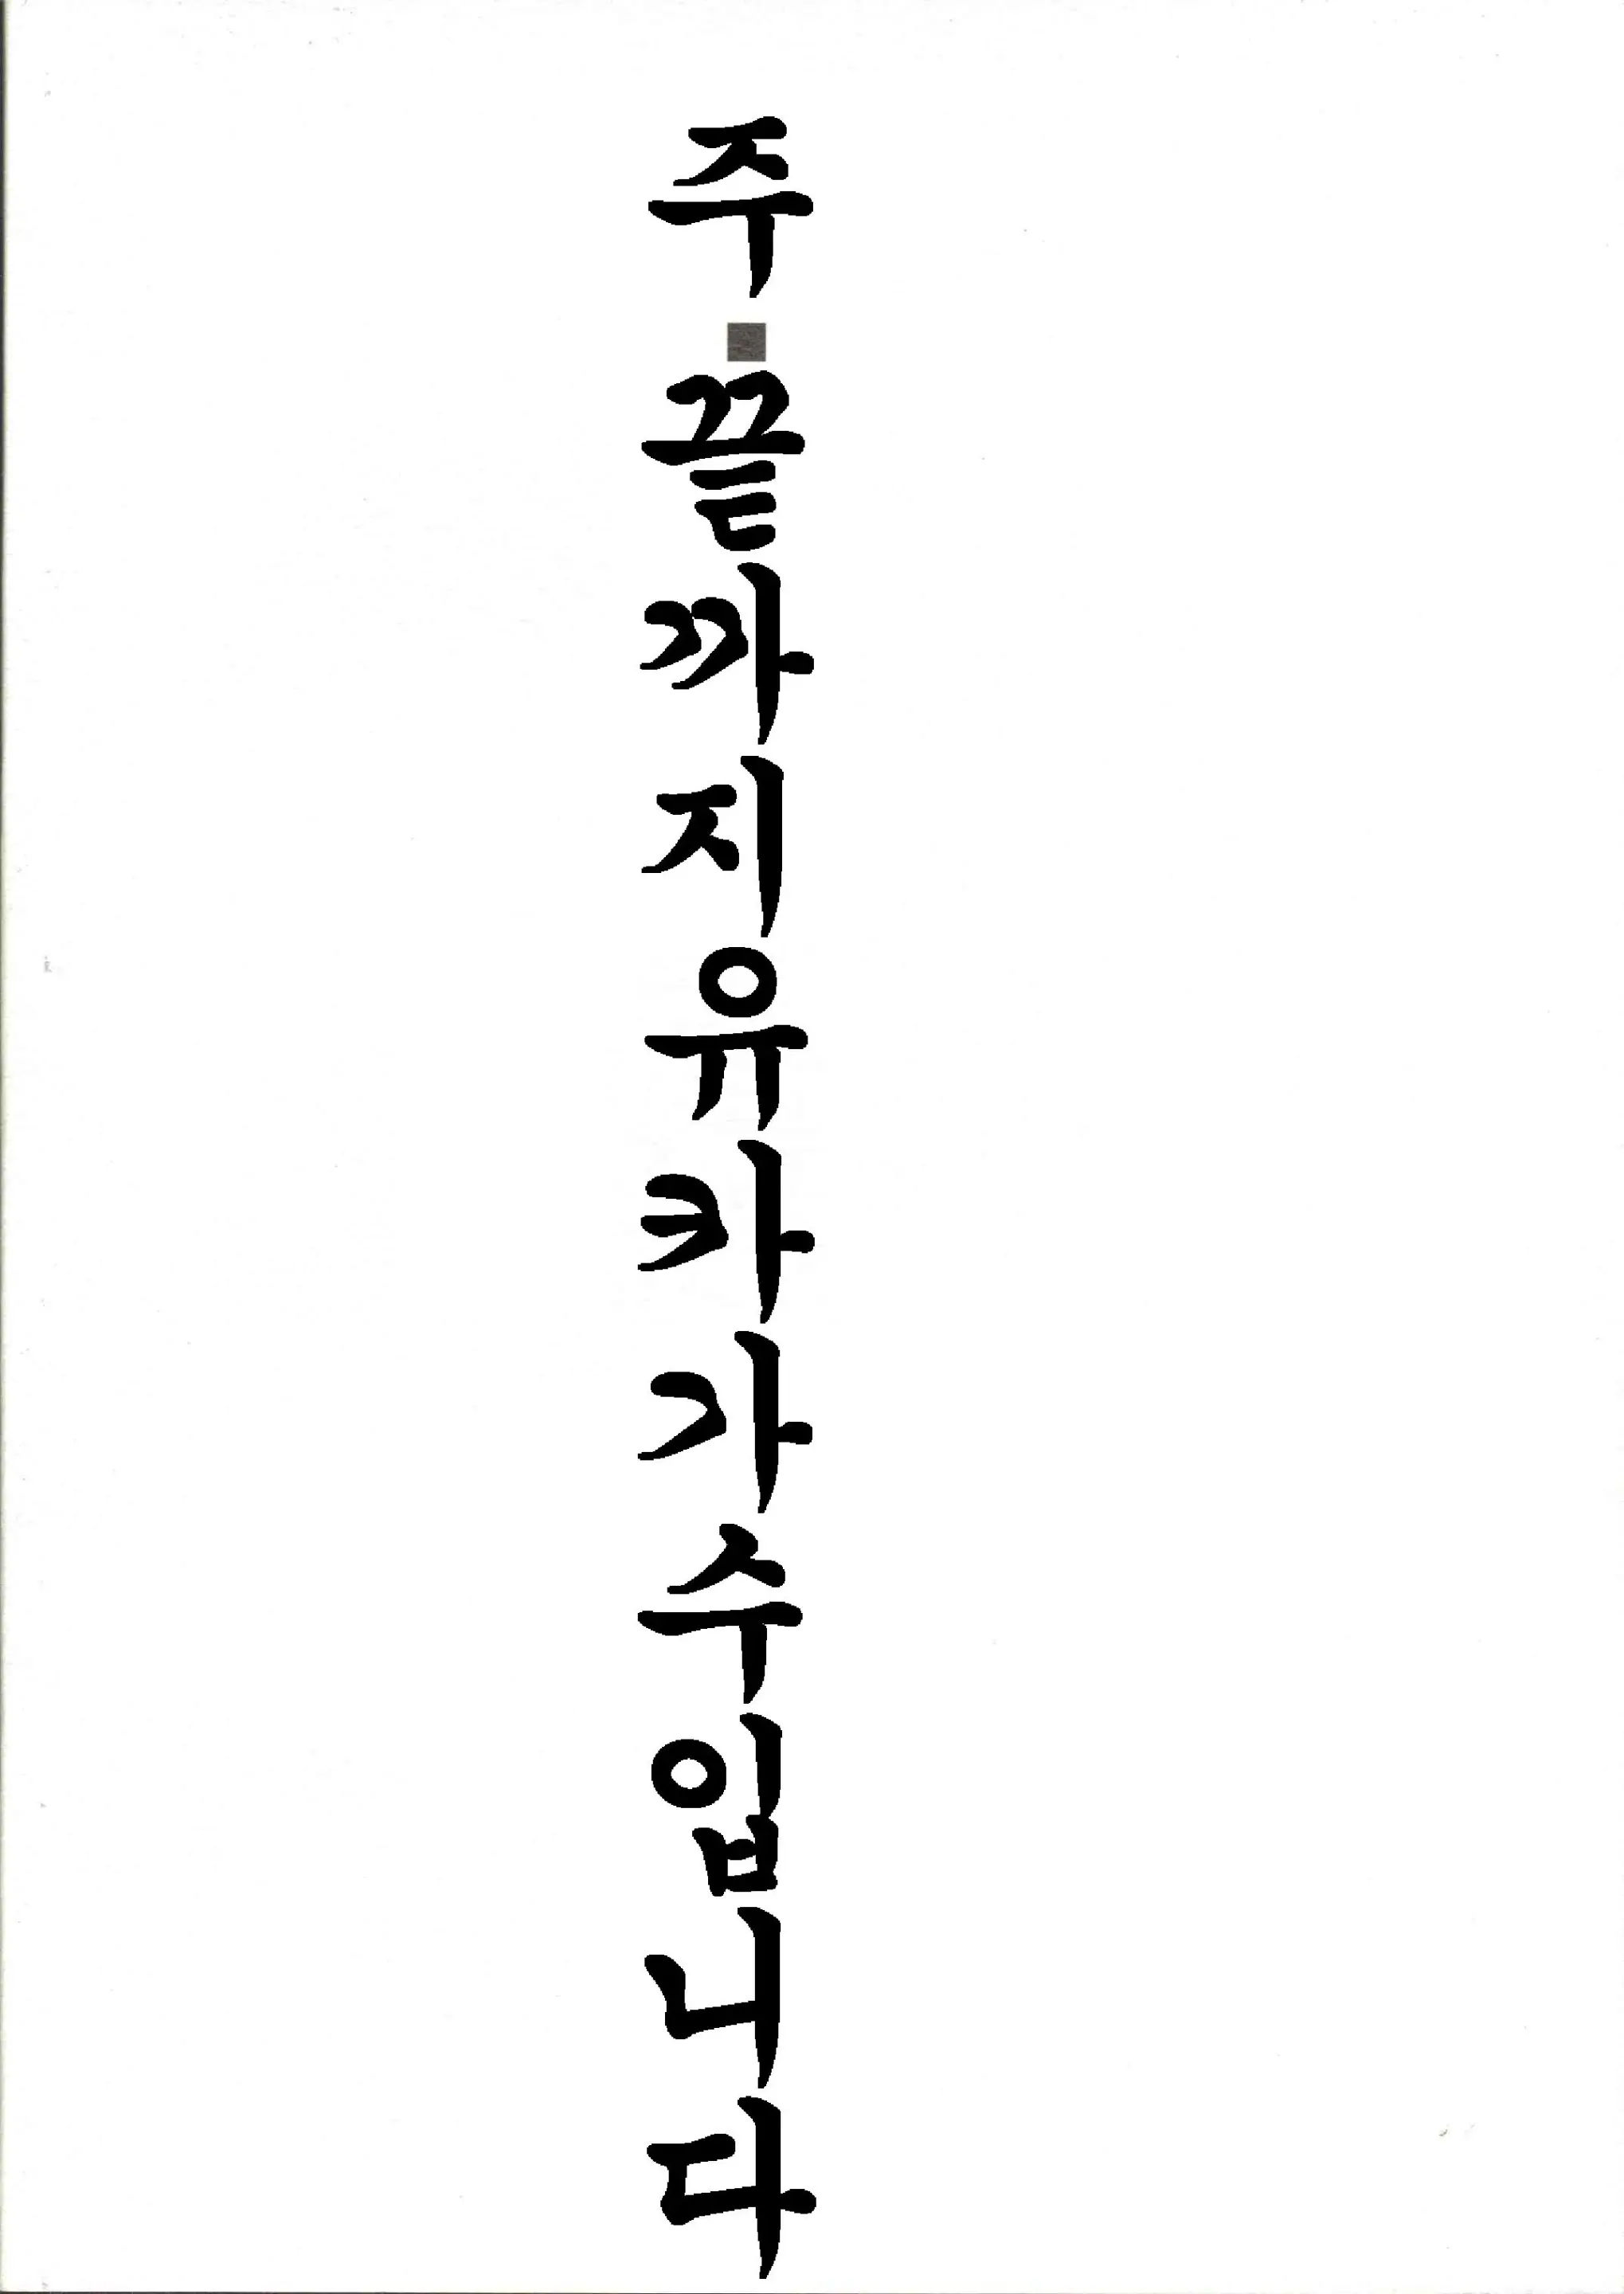 주■끝까지유카가수입니다